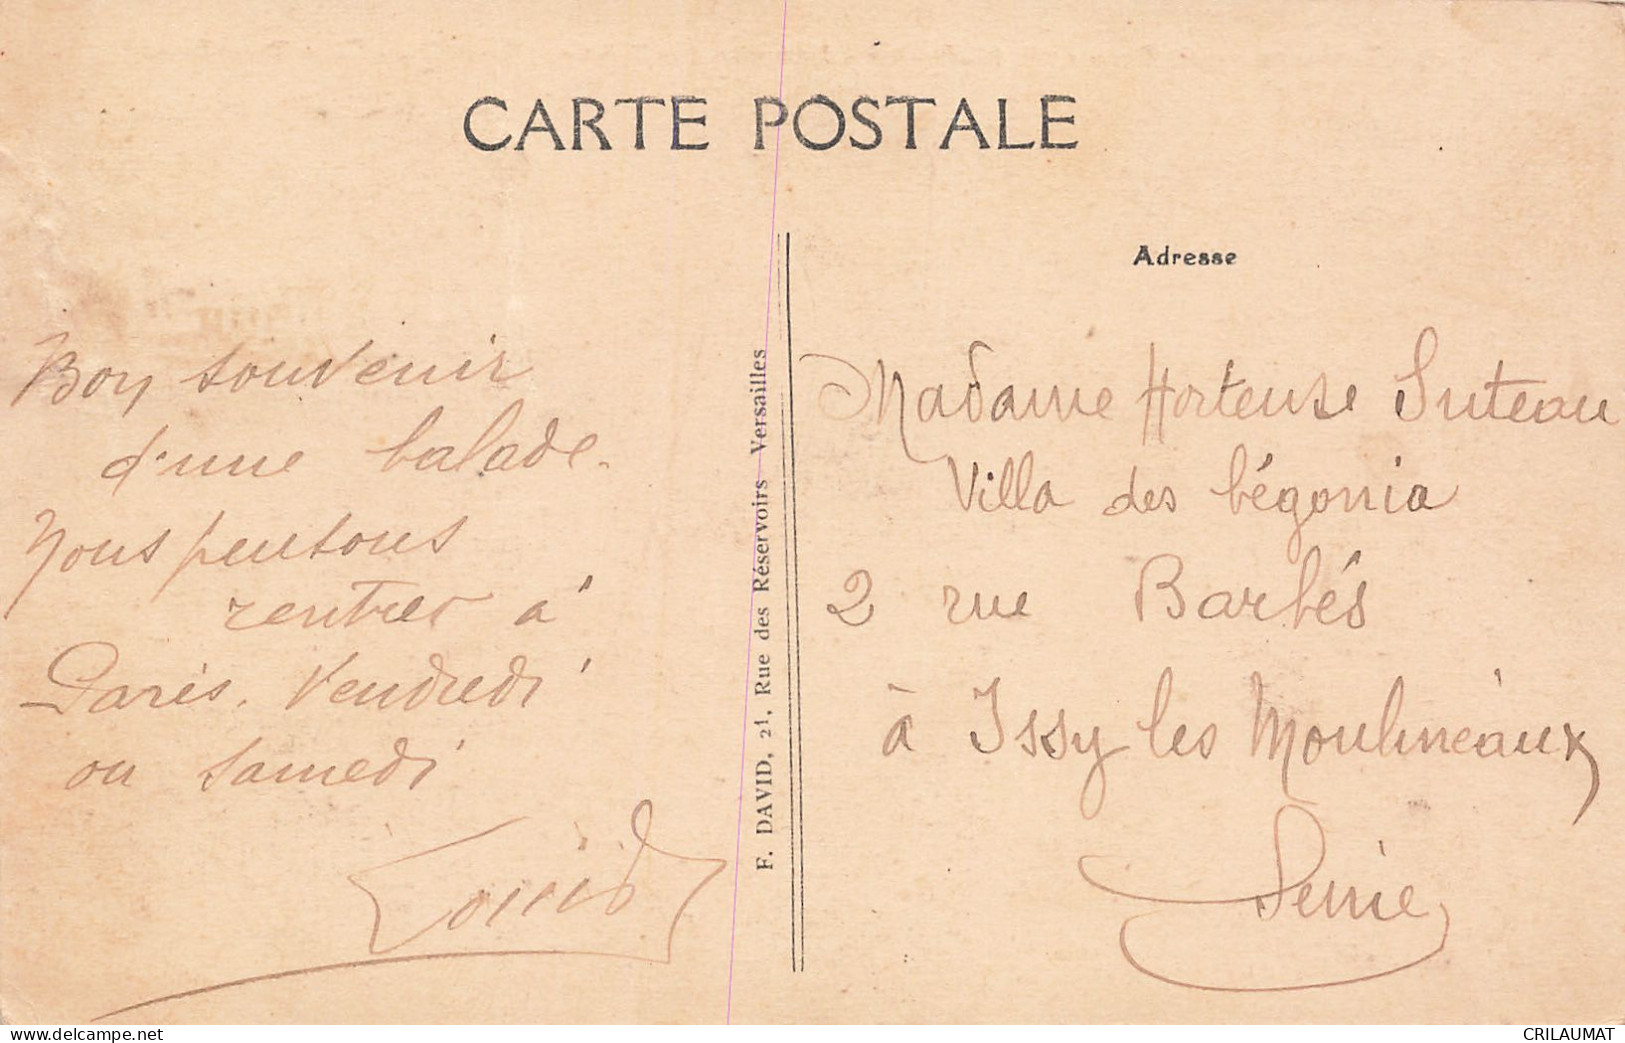 CARTE POSTALE
Bon souvenir
d'une balade.
Nous pensons
rentrer à
Paris. Vendredi
ou Samedi
F. DAVID, 21, Rue des Réservoirs Versailles
Adresse
Madame Hortense Suteau
Villa des bégonia
2 rue Barbés
à Issy les Moulineaux
Seine
www.delcampe.net
CRILAUMAT